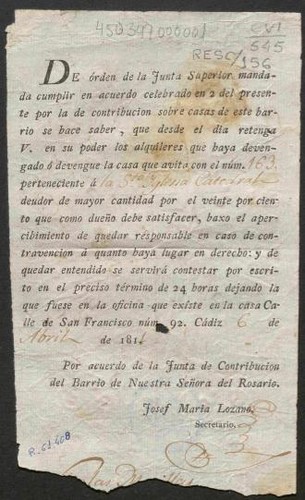 CVI
545
RESC/156
DE órden de la Junta Superior manda-
da cumplir en acuerdo celebrado en 2 del presente
por la de contribucion sobre casas de este bar-
rio se hace saber, que desde el dia retenga
V. en su poder los alquileres que haya deven-
gado ó devengue la casa que avita con el núm. 163.
perteneciente á la Sta. Iglesia Catedral
deudor de mayor cantidad por el veinte por cien-
to que como dueño debe satisfacer, baxo el aper-
cibimiento de quedar responsable en caso de con-
travencion á quanto haya lugar en derecho: y de
quedar entendido se servirá contestar por escri-
to en el preciso término de 24 horas dejando la
que fuese en la oficina que existe en la casa Ca-
lle de San Francisco núm. 92. Cádiz 6 de
Abril de 181
Por acuerdo de la Junta de Contribucion
del Barrio de Nuestra Señora del Rosario.
Josef Maria Lozano.
Secretario.
R.61.408